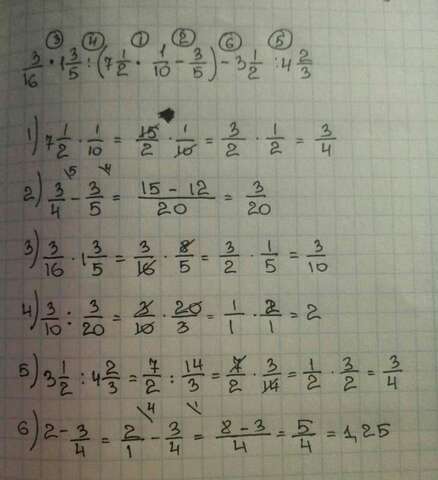 ③ ④ ① ② ⑥ ⑤
3/16 · 1 3/5 : (7 1/2 · 1/10 - 3/5) - 3 1/2 : 4 2/3
1) 7 1/2 · 1/10 = 15/2 · 1/10 = 3/2 · 1/2 = 3/4
2) 3/4 \5 - 3/5 \4 = 15 - 12/20 = 3/20
3) 3/16 · 1 3/5 = 3/16 · 8/5 = 3/2 · 1/5 = 3/10
4) 3/10 : 3/20 = 3/10 · 20/3 = 1/1 · 2/1 = 2
5) 3 1/2 : 4 2/3 = 7/2 : 14/3 = 7/2 · 3/14 = 1/2 · 3/2 = 3/4
6) 2 - 3/4 = 2/1 \4 - 3/4 \1 = 8 - 3/4 = 5/4 = 1,25